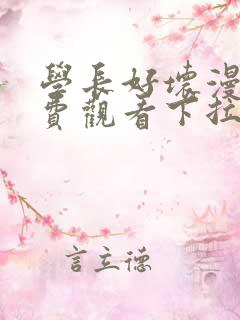 學長好壞漫
費觀看下拉
言立德